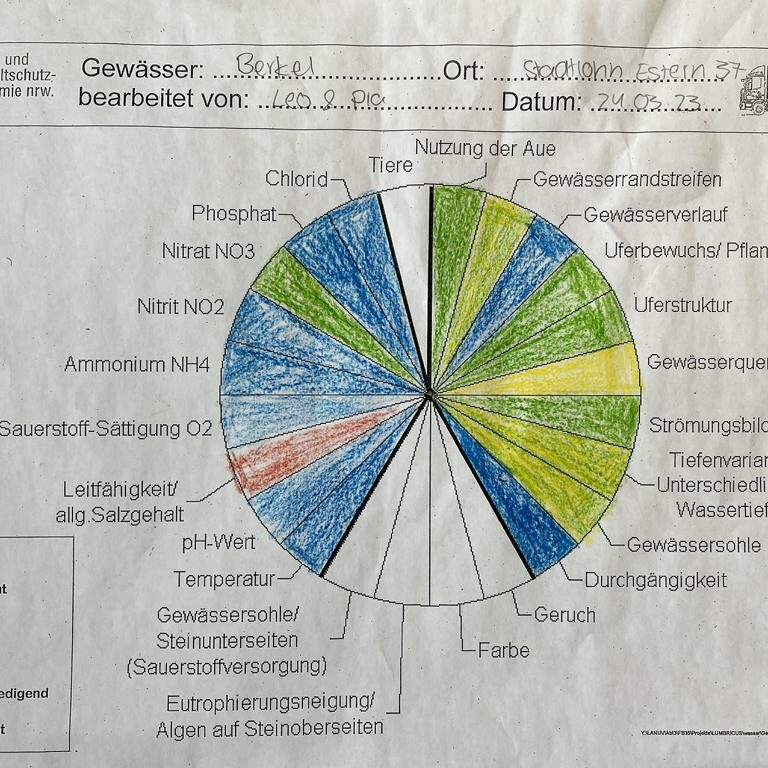 und
ltschutz-
mie nrw.
Gewässer: ... Berkel ... Ort: ... Stadtlohn Estern 37
bearbeitet von: ... Leo & Pia ... Datum: ... 24.03.23 ...
Nutzung der Aue
Tiere
Chlorid
Gewässerrandstreifen
Phosphat
Gewässerverlauf
Nitrat NO3
Uferbewuchs/ Pflan
Nitrit NO2
Uferstruktur
Ammonium NH4
Gewässerquer
Sauerstoff-Sättigung O2
Strömungsbild
Tiefenvarian
Unterschiedli
Wassertief
Leitfähigkeit/
allg.Salzgehalt
pH-Wert
Gewässersohle
Temperatur
Durchgängigkeit
Gewässersohle/
Steinunterseiten
(Sauerstoffversorgung)
Geruch
Farbe
Eutrophierungsneigung/
Algen auf Steinoberseiten
edigend